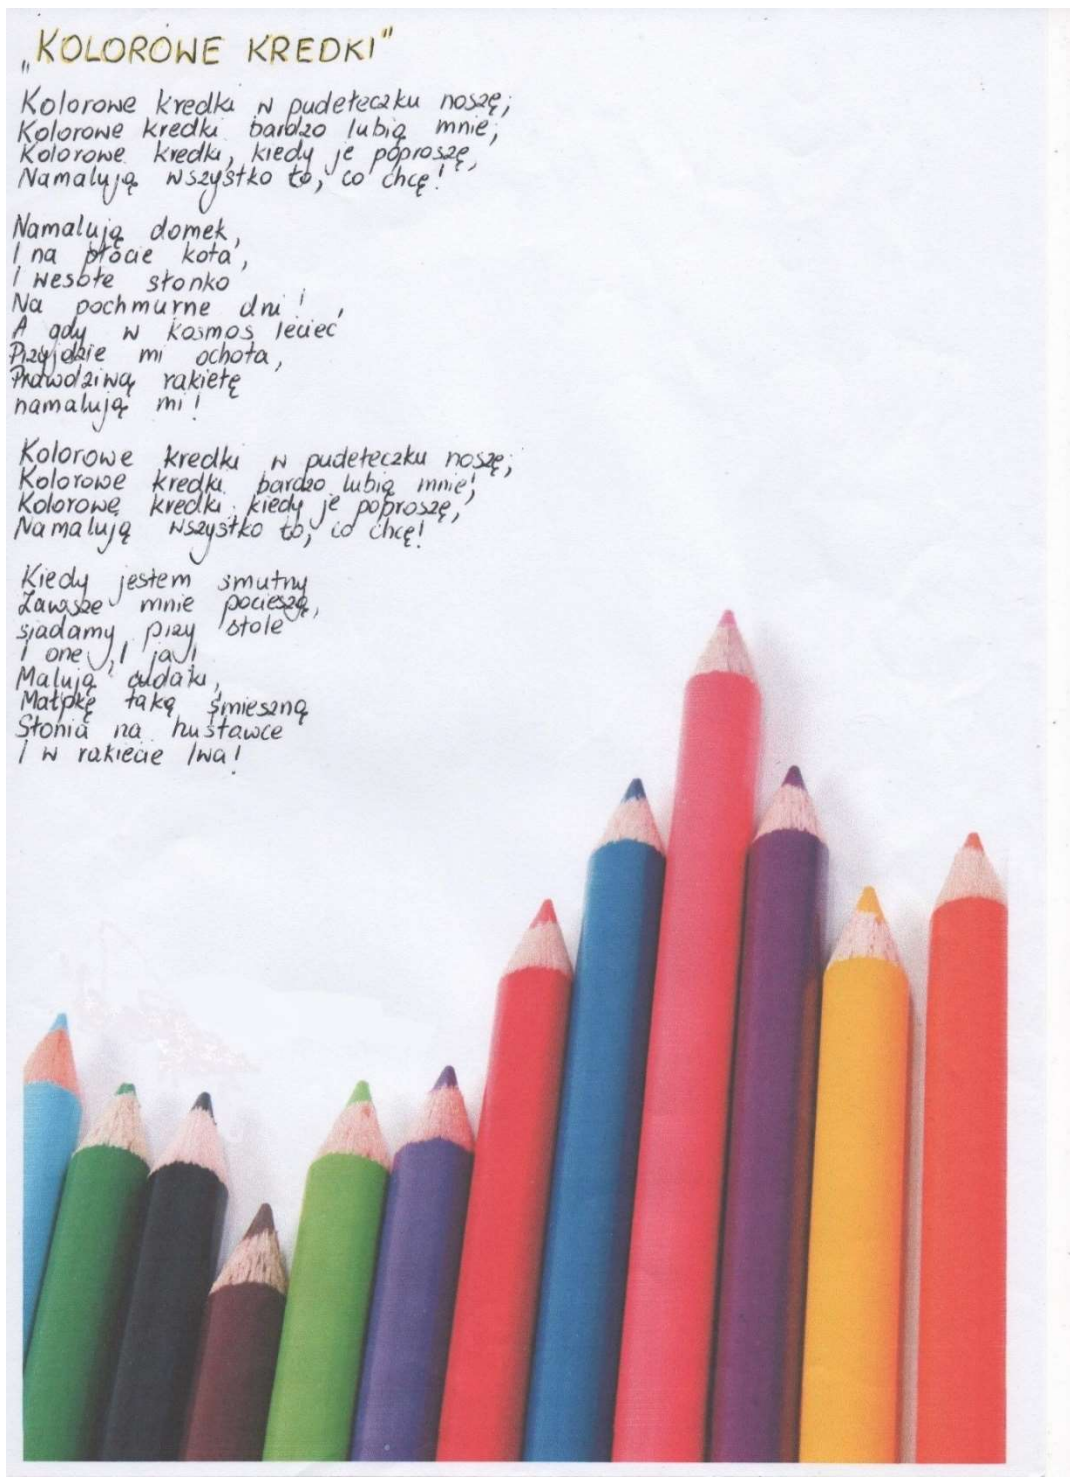 „KOLOROWE KREDKI"
Kolorowe kredki w pudełeczku noszę,
Kolorowe kredki bardzo lubią mnie,
Kolorowe kredki, kiedy je poproszę,
Namalują wszystko to, co chcę!
Namalują domek,
I na płocie kota,
I wesołe słonko
Na pochmurne dni!
A gdy w kosmos lecieć
Przyjdzie mi ochota,
Prawdziwą rakietę
namalują mi!
Kolorowe kredki w pudełeczku noszę,
Kolorowe kredki bardzo lubią mnie,
Kolorowe kredki, kiedy je poproszę,
Namalują wszystko to, co chcę!
Kiedy jestem smutny
Zawsze mnie pocieszą,
siadamy przy stole
I one, I ja!
Malują cudaki,
Małpkę taką śmieszną
Słonia na huśtawce
I w rakiecie lwa!